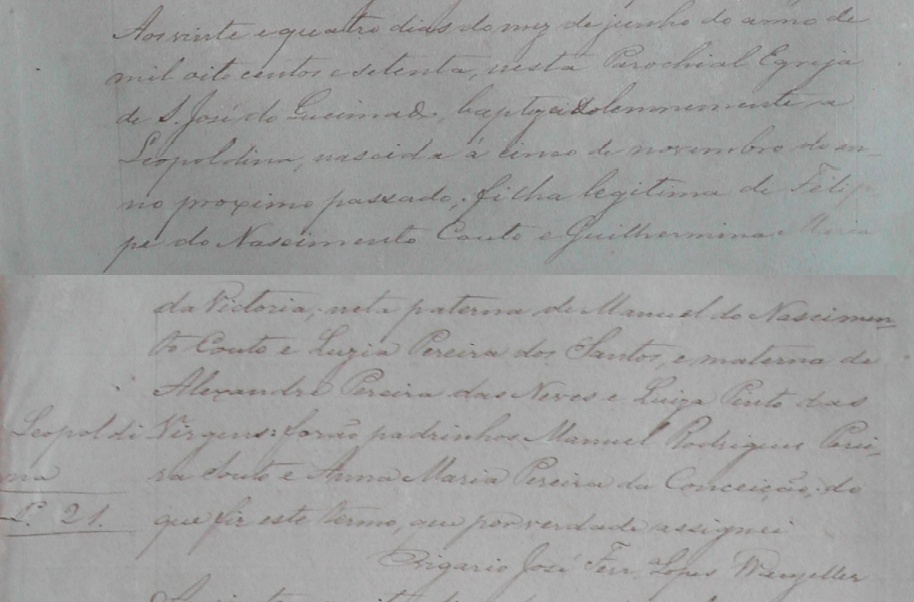 Aos vinte e quatro dias do mez de junho do anno de
mil oito centos e setenta, nesta Parochial Egreja
de S. José do Queimado, baptizei solemnemente a
Leopoldina, nascida á cinco de novembro do an-
no proximo passado, filha legitima de Filip-
pe do Nascimento Couto e Guilhermina Maria
da Victoria, neta paterna de Manuel do Nascimen-
to Couto e Luzia Pereira dos Santos, e materna de
Alexandre Pereira das Neves e Luiza Pinto das
Leopoldi
Virgens: forão padrinhos Manuel Rodrigues Perei-
na
ra Couto e Anna Maria Pereira da Conceição; do
L. 21.
que fiz este termo, que por verdade assignei
Vigario José Ferr. Lopes Wanzeller